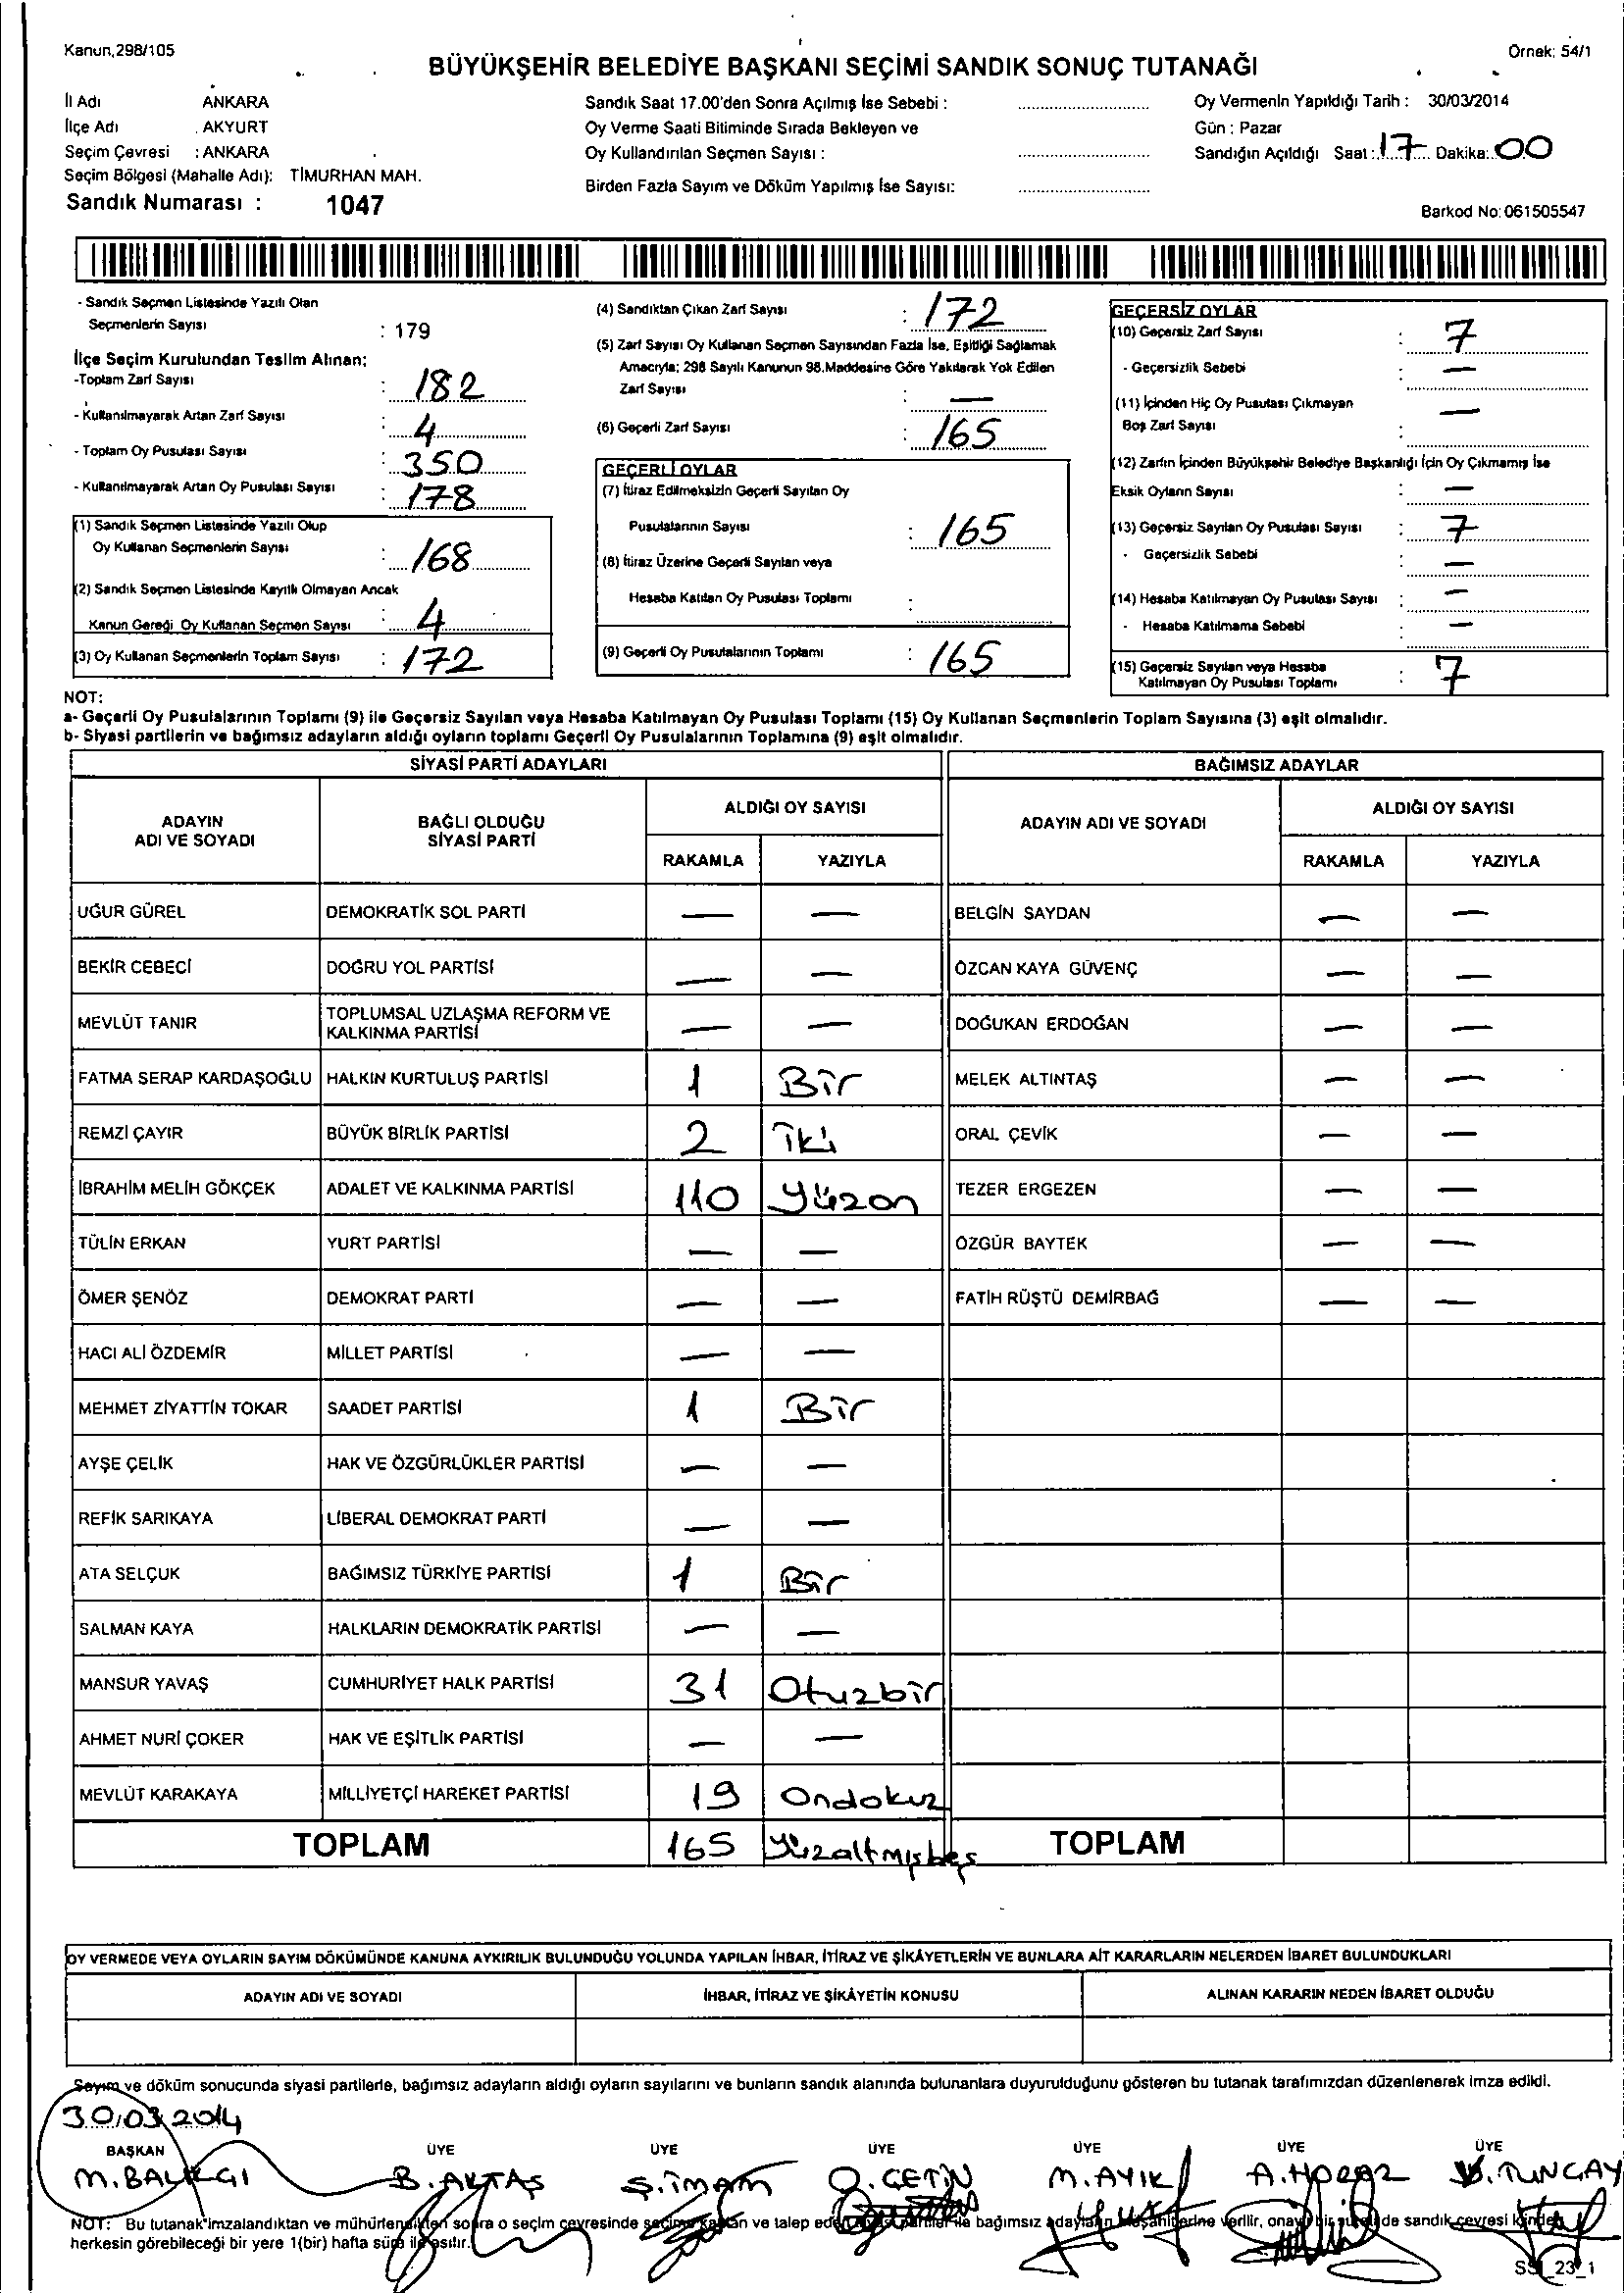 Kanun,298/105
Örnek: 54/1
BÜYÜKŞEHİR BELEDİYE BAŞKANI SEÇİMİ SANDIK SONUÇ TUTANAĞI
İl Adı ANKARA
İlçe Adı . AKYURT
Seçim Çevresi : ANKARA
Seçim Bölgesi (Mahalle Adı): TİMURHAN MAH.
Sandık Numarası : 1047
Sandık Saat 17.00'den Sonra Açılmış İse Sebebi :
Oy Verme Saati Bitiminde Sırada Bekleyen ve
Oy Kullandırılan Seçmen Sayısı :
Birden Fazla Sayım ve Döküm Yapılmış İse Sayısı:
Oy Vermenin Yapıldığı Tarih : 30/03/2014
Gün : Pazar
Sandığın Açıldığı Saat : 17 Dakika: 00
Barkod No: 061505547
- Sandık Seçmen Listesinde Yazılı Olan
Seçmenlerin Sayısı : 179
İlçe Seçim Kurulundan Teslim Alınan;
-Toplam Zarf Sayısı : 182
- Kullanılmayarak Artan Zarf Sayısı : 4
- Toplam Oy Pusulası Sayısı : 350
- Kullanılmayarak Artan Oy Pusulası Sayısı : 178
(1) Sandık Seçmen Listesinde Yazılı Olup
Oy Kullanan Seçmenlerin Sayısı : 168
(2) Sandık Seçmen Listesinde Kayıtlı Olmayan Ancak
Kanun Gereği Oy Kullanan Seçmen Sayısı : 4
(3) Oy Kullanan Seçmenlerin Toplam Sayısı : 172
(4) Sandıktan Çıkan Zarf Sayısı : 172
(5) Zarf Sayısı Oy Kullanan Seçmen Sayısından Fazla İse, Eşitliği Sağlamak
Amacıyla; 298 Sayılı Kanunun 98.Maddesine Göre Yakılarak Yok Edilen
Zarf Sayısı : —
(6) Geçerli Zarf Sayısı : 165
GEÇERLİ OYLAR
(7) İtiraz Edilmeksizin Geçerli Sayılan Oy
Pusulalarının Sayısı : 165
(8) İtiraz Üzerine Geçerli Sayılan veya
Hesaba Katılan Oy Pusulası Toplamı :
(9) Geçerli Oy Pusulalarının Toplamı : 165
GEÇERSİZ OYLAR
(10) Geçersiz Zarf Sayısı : 7
- Geçersizlik Sebebi : —
(11) İçinden Hiç Oy Pusulası Çıkmayan —
Boş Zarf Sayısı :
(12) Zarfın İçinden Büyükşehir Belediye Başkanlığı İçin Oy Çıkmamış İse
Eksik Oyların Sayısı : —
(13) Geçersiz Sayılan Oy Pusulası Sayısı : 7
- Geçersizlik Sebebi : —
(14) Hesaba Katılmayan Oy Pusulası Sayısı : —
- Hesaba Katılmama Sebebi : —
(15) Geçersiz Sayılan veya Hesaba
Katılmayan Oy Pusulası Toplamı : 7
NOT:
a- Geçerli Oy Pusulalarının Toplamı (9) ile Geçersiz Sayılan veya Hesaba Katılmayan Oy Pusulası Toplamı (15) Oy Kullanan Seçmenlerin Toplam Sayısına (3) eşit olmalıdır.
b- Siyasi partilerin ve bağımsız adayların aldığı oyların toplamı Geçerli Oy Pusulalarının Toplamına (9) eşit olmalıdır.
SİYASİ PARTİ ADAYLARI BAĞIMSIZ ADAYLAR
ADAYIN ADI VE SOYADI BAĞLI OLDUĞU SİYASİ PARTİ ALDIĞI OY SAYISI ADAYIN ADI VE SOYADI ALDIĞI OY SAYISI
RAKAMLA YAZIYLA RAKAMLA YAZIYLA
UĞUR GÜREL DEMOKRATİK SOL PARTİ — — BELGİN SAYDAN — —
BEKİR CEBECİ DOĞRU YOL PARTİSİ — — ÖZCAN KAYA GÜVENÇ — —
MEVLÜT TANIR TOPLUMSAL UZLAŞMA REFORM VE KALKINMA PARTİSİ — — DOĞUKAN ERDOĞAN — —
FATMA SERAP KARDAŞOĞLU HALKIN KURTULUŞ PARTİSİ 1 Bir MELEK ALTINTAŞ — —
REMZİ ÇAYIR BÜYÜK BİRLİK PARTİSİ 2 iki ORAL ÇEVİK — —
İBRAHİM MELİH GÖKÇEK ADALET VE KALKINMA PARTİSİ 110 Yüzon TEZER ERGEZEN — —
TÜLİN ERKAN YURT PARTİSİ — — ÖZGÜR BAYTEK — —
ÖMER ŞENÖZ DEMOKRAT PARTİ — — FATİH RÜŞTÜ DEMİRBAĞ — —
HACI ALİ ÖZDEMİR MİLLET PARTİSİ — —
MEHMET ZİYATTİN TOKAR SAADET PARTİSİ 1 Bir
AYŞE ÇELİK HAK VE ÖZGÜRLÜKLER PARTİSİ — —
REFİK SARIKAYA LİBERAL DEMOKRAT PARTİ — —
ATA SELÇUK BAĞIMSIZ TÜRKİYE PARTİSİ 1 Bir
SALMAN KAYA HALKLARIN DEMOKRATİK PARTİSİ — —
MANSUR YAVAŞ CUMHURİYET HALK PARTİSİ 31 Otuzbir
AHMET NURİ ÇOKER HAK VE EŞİTLİK PARTİSİ — —
MEVLÜT KARAKAYA MİLLİYETÇİ HAREKET PARTİSİ 19 Ondokuz
TOPLAM 165 Yüzaltmışbeş TOPLAM
OY VERMEDE VEYA OYLARIN SAYIM DÖKÜMÜNDE KANUNA AYKIRILIK BULUNDUĞU YOLUNDA YAPILAN İHBAR, İTİRAZ VE ŞİKÂYETLERİN VE BUNLARA AİT KARARLARIN NELERDEN İBARET BULUNDUKLARI
ADAYIN ADI VE SOYADI İHBAR, İTİRAZ VE ŞİKÂYETİN KONUSU ALINAN KARARIN NEDEN İBARET OLDUĞU
Sayım ve döküm sonucunda siyasi partilerle, bağımsız adayların aldığı oyların sayılarını ve bunların sandık alanında bulunanlara duyurulduğunu gösteren bu tutanak tarafımızdan düzenlenerek imza edildi.
30.03.2014
BAŞKAN ÜYE ÜYE ÜYE ÜYE ÜYE ÜYE
M.BALIKGI B.AKTAŞ Ş.İMAM Ö.ÇETİN M.AYIK A.HORAZ TUNCAY
NOT: Bu tutanak imzalandıktan ve mühürlendikten sonra o seçim çevresinde seçime katılan ve talep eden siyasi partiler ile bağımsız adayların müşahitlerine verilir, onaylı bir sureti de sandık çevresi içinde
herkesin görebileceği bir yere 1(bir) hafta süre ile asılır.